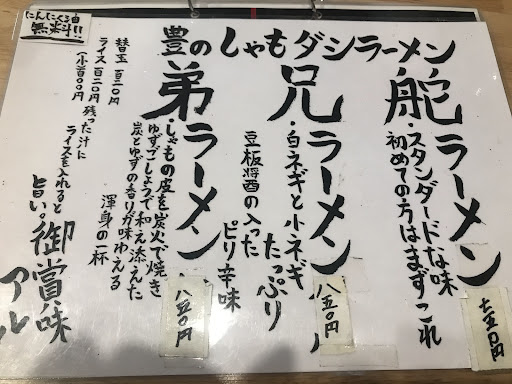 にんにく
無料!!
豊のしゃもダシラーメン
舵ラーメン
・スタンダードな味
初めての方はまずこれ
七五〇円
兄ラーメン
・白ネギと小ネギ
たっぷり
豆板醤の入った
ピリ辛味
八五〇円
弟ラーメン
・しゃもの皮を炭火で焼き
ゆずごしょうで和え添えた
炭とゆずの香りが味わえる
渾身の一杯
八五〇円
替玉 百二〇円
ライス 百二〇円
(小 百〇〇円)
残った汁に
ライスを入れると
旨い。御賞味
アル